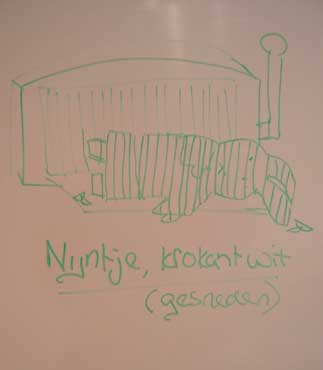 Nijntje, krokant wit
(gesneden)